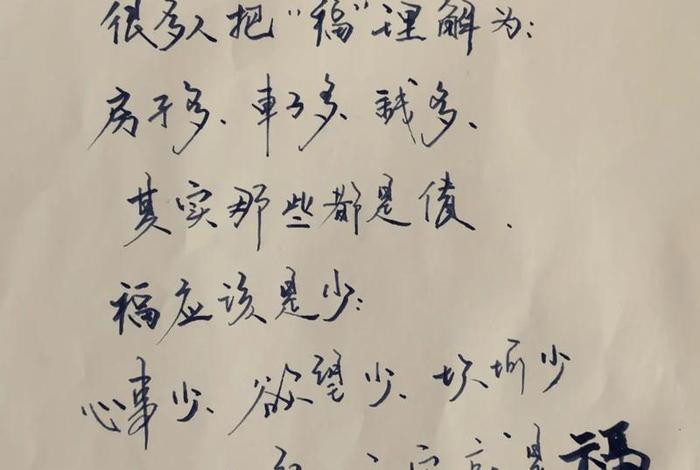 很多人把“福”理解为:
房子多、車子多、钱多、
其实那些都是债.
福应该是少:
心事少、欲望少、坎坷少
是福